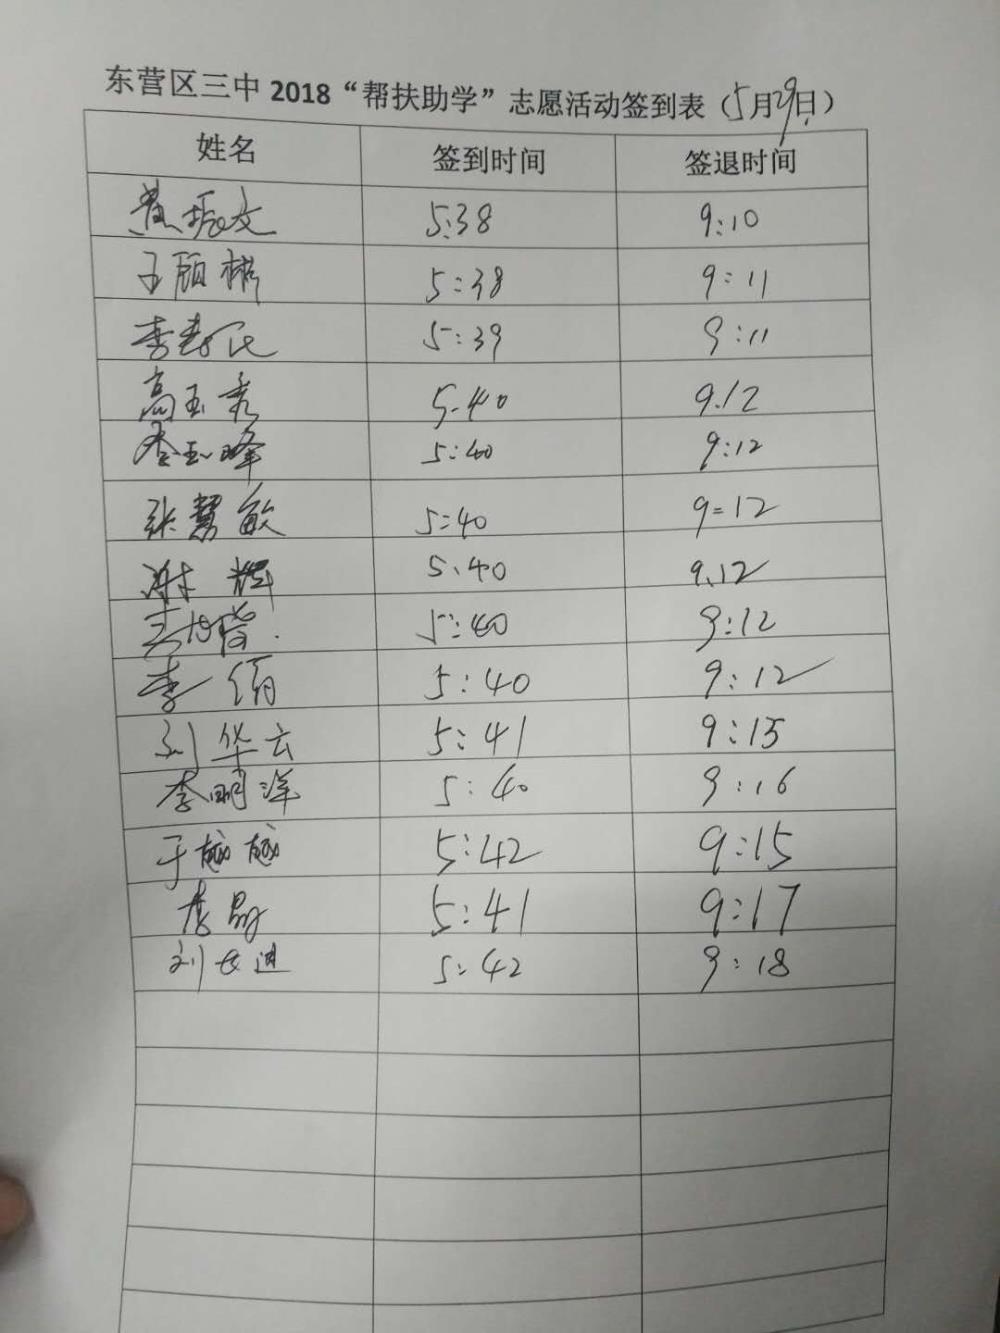 东营区三中 2018“帮扶助学”志愿活动签到表（5月29日）
姓名 签到时间 签退时间
黄振文 5:38 9:10
王顾彬 5:38 9:11
李寿民 5:39 9:11
高玉秀 5.40 9.12
李玉峰 5:40 9:12
张慧敏 5:40 9=12
谢辉 5、40 9、12
5:40 9:12
李倩 5:40 9:12
刘华云 5:41 9:15
李明洋 5:40 9:16
于越越 5:42 9:15
李勋 5:41 9:17
刘文迪 5:42 9:18